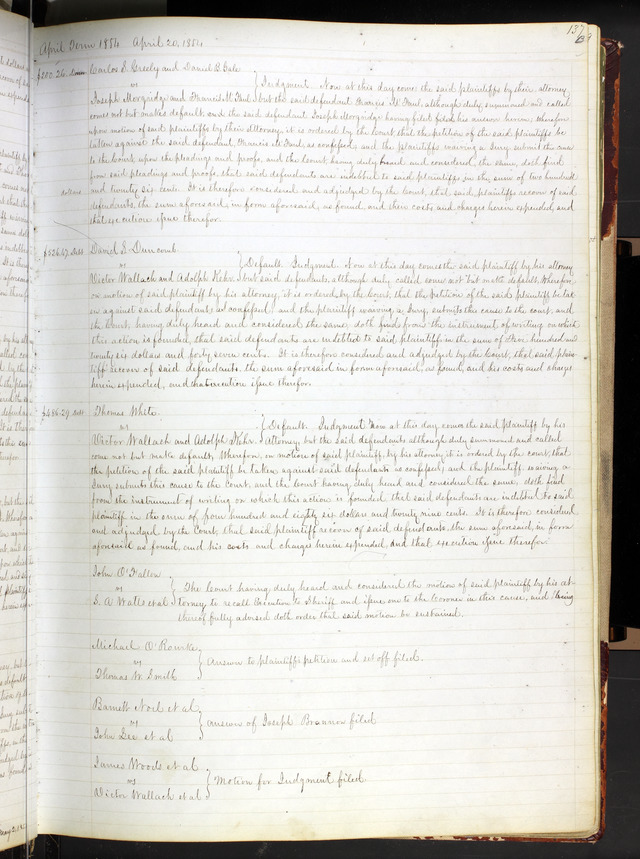 137
April Term 1854 April 20, 1854
$200.26. Carlos S. Greely and Daniel B. Gale
vs } Judgment. Now at this day come the said plaintiffs by their attorney
Joseph Morgridge and Francis H. but the said defendant Francis H. although duly summoned and called
comes not but makes default, and the said defendant Joseph Morgridge having filed his answer herein, wherefore
upon motion of said plaintiffs by their attorney, it is ordered by the Court that the petition of the said plaintiffs be
taken against the said defendant, Francis H. as confessed, and the plaintiffs waiving a Jury, submit the cause
to the Court upon the pleadings and proofs, and the Court having duly heard and considered the same, doth find
from said pleadings and proofs, that said defendants are indebted to said plaintiffs in the sum of two hundred
dollars and twenty six cents. It is therefore considered and adjudged by the Court, that said plaintiffs recover of said
defendants, the sum aforesaid, in form aforesaid, as found, and their costs and charges herein expended, and
that execution issue therefor.
$526.47 Debt David S. Duncomb
vs } Default. Judgment. Now at this day comes the said plaintiff by his attorney
Victor Wallach and Adolph Kehr. but said defendants, although duly called come not but make default, Wherefore,
on motion of said plaintiff by his attorney, it is ordered by the Court, that the petition of the said plaintiff be tak
en against said defendants, as confessed, and the plaintiff waiving a Jury, submits the cause to the Court, and
the Court, having duly heard and considered the same, doth find from the instrument of writing on which
this action is founded, that said defendants are indebted to said plaintiff in the sum of five hundred and
twenty six dollars and forty seven cents. It is therefore considered and adjudged by the Court, that said plain-
tiff recover of said defendants, the sum aforesaid in form aforesaid, as found, and his costs and charges
herein expended, and that execution issue therefor.
$486.29 Debt Thomas White
vs } Default. Judgment Now at this day, comes the said plaintiff by his
Victor Wallach and Adolph Kehr. attorney, but the said defendants although duly summoned and called
come not but make default, Wherefore, on motion of said plaintiff, by his attorney it is ordered by the Court, that
the petition of the said plaintiff be taken against said defendants as confessed, and the plaintiff waiving a
Jury submits this cause to the Court, and the Court having duly heard and considered the same, doth find
from the instrument of writing on which this action is founded that said defendants are indebted to said
plaintiff in the sum of four hundred and eighty six dollars and twenty nine cents. It is therefore considered
and adjudged by the Court, that said plaintiff recover of said defendants, the sum aforesaid, in form
aforesaid as found, and his costs and charges herein expended, and that execution issue therefor.
John O'Fallon
vs } The Court having duly heard and considered the motion of said plaintiff by his at-
S. A Watts et al torney, to recall Execution to Sheriff and issue one to the Coroner in this cause, and being
thereof fully advised doth order that said motion be sustained.
Michael O'Rourke
vs } Answer to plaintiffs petition and set off filed.
Thomas W. Smith
Barnett Noel et al
vs } Answer of Joseph filed
John Lee et al
James Woods et al
vs } Motion for Judgment filed
Victor Wallach et al